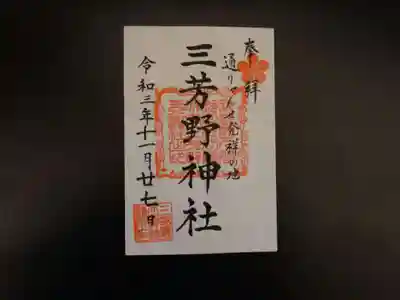 奉拝
通りゃんせ発祥の地
三芳野神社
令和三年十一月廿七日